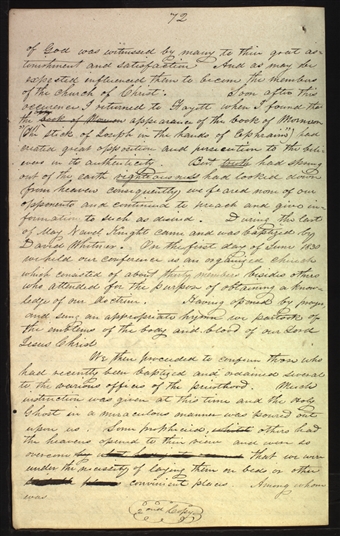 72
of God was witnessed by many to their great as-
tonishment and satisfaction And as may be
expected influenced them to become the members
of the Church of Christ. Soon after this
occurence I returned to Fayette when I found the
the book of Mormon appearance of the book of Mormon
stick of Joseph in the hands of Ephraim" had
created great opposition and persecution to the beli-
evers in its authenticity. But truth had sprung
out of the earth righteousness had looked down
from heaven consequently we feared none of our
opponents and continued to preach and give in-
formation to such as desired. During the last
of May Newel Knight came and was baptized by
David Whitmer. On the first day of June 1830
we held our conference as an organized church
which consisted of about thirty members besides others
who attended for the purpose of obtaining a know-
ledge of our doctrine. Having opened by prayer
and sung an appropriate hymn we partook of
the emblems of the body and blood of our Lord
Jesus Christ
We then proceeded to confirm those who
had recently been baptized and ordained several
to the various offices of the priesthood. Much
instruction was given at this time and the Holy
Ghost in a miraculous manner was poured out
upon us. Some prophesied, others had
the heavens opened to their view and were so
overcome that we were
under the necessity of laying them on bed or other
convenient places. Among whom
was